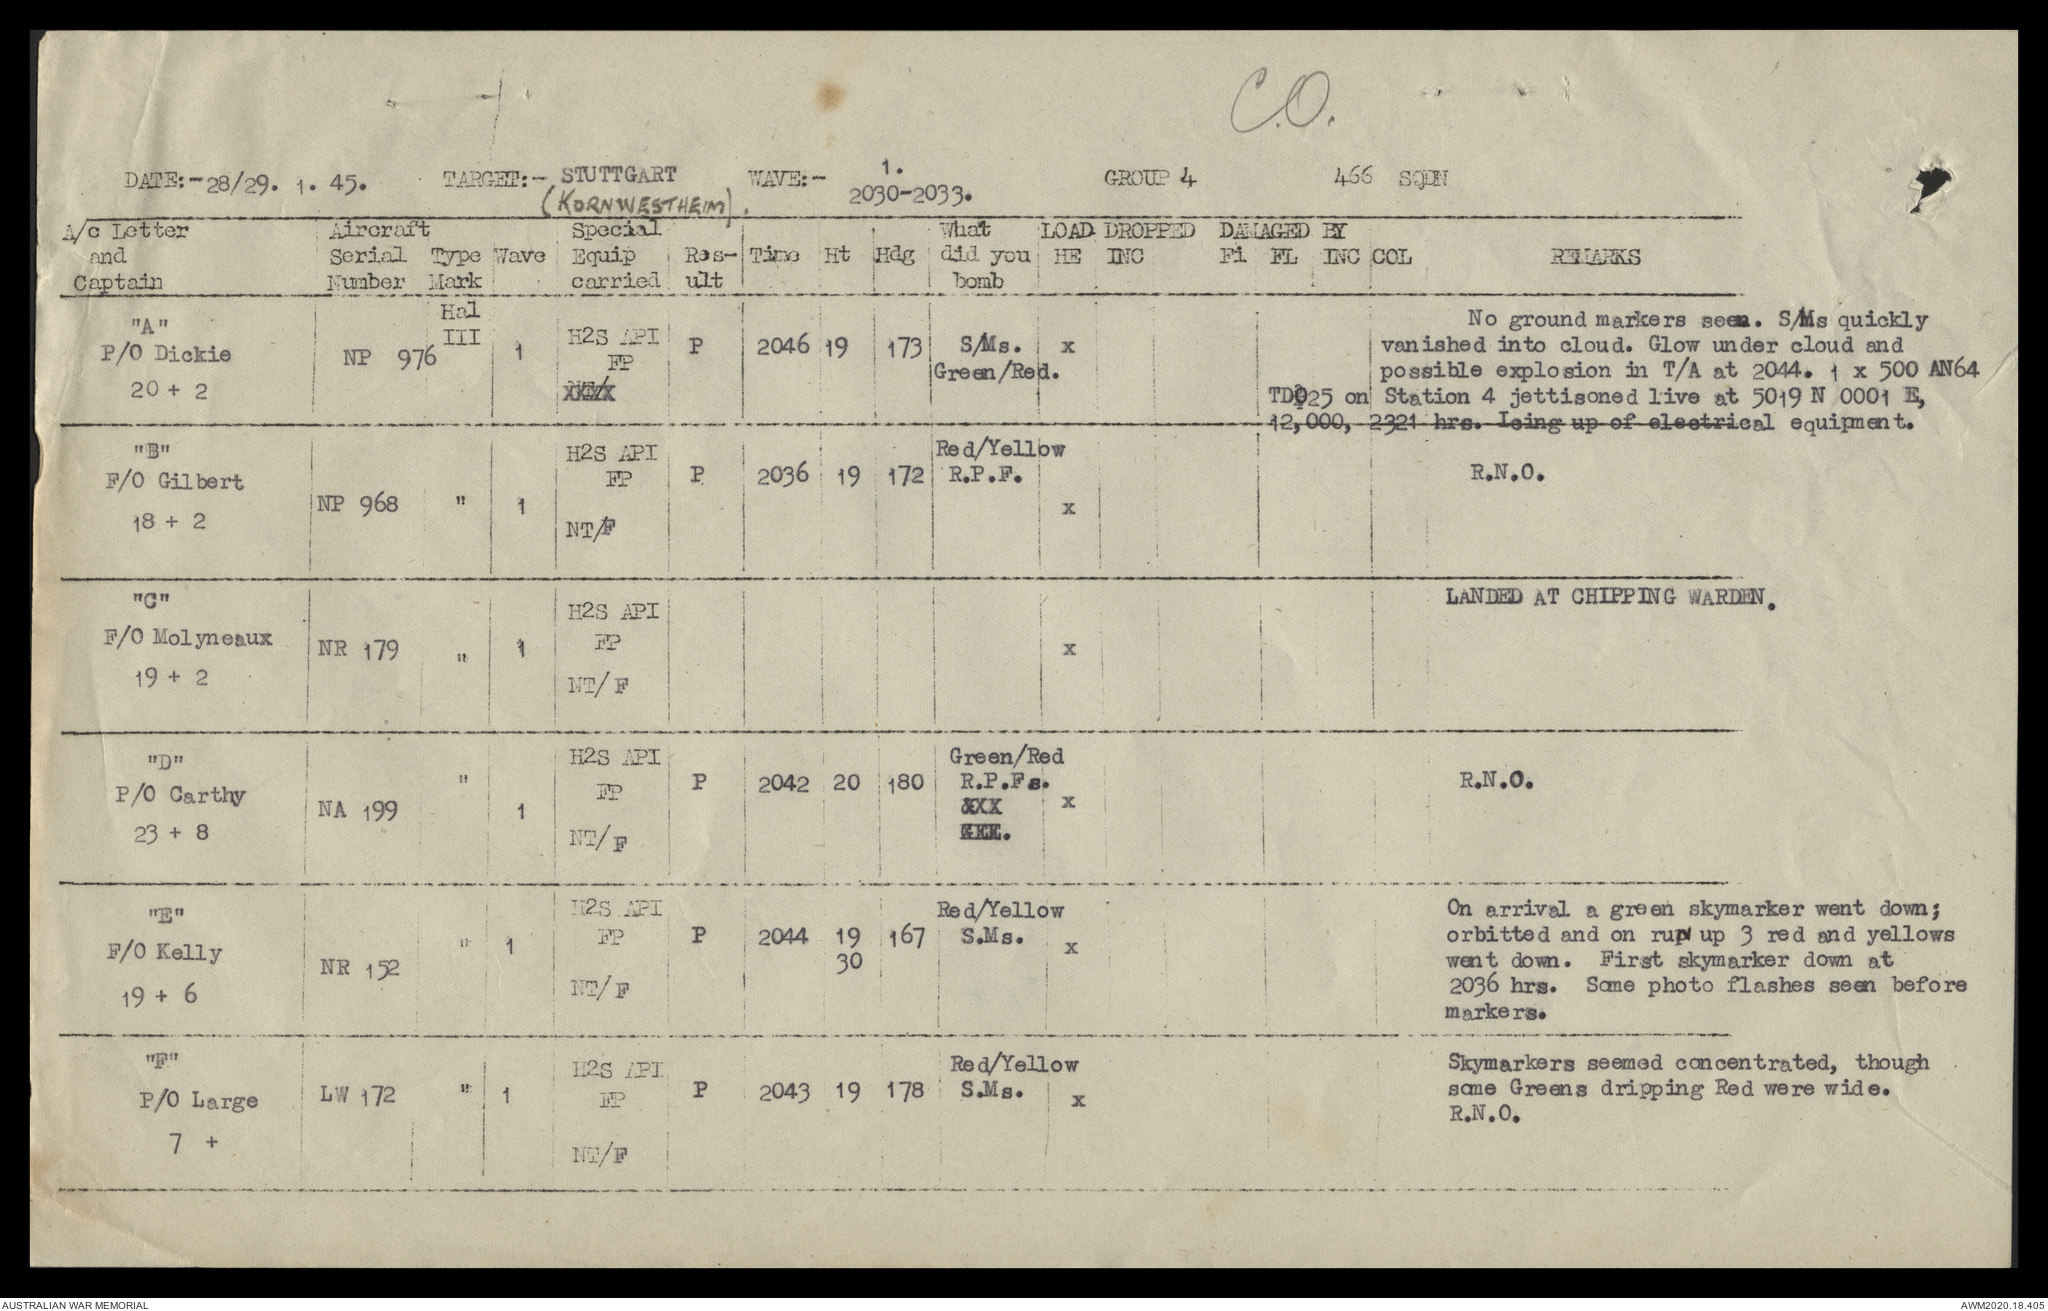 C.O.
DATE:-28/29. 1. 45. TARGET:- STUTTGART WAVE:- 1. GROUP 4 466 SQDN
(KORNWESTHEIM). 2030-2033.
A/c Letter Aircraft Special What LOAD DROPPED DAMAGED BY
and Serial Type Wave Equip Res- Time Ht Hdg did you HE INC Fi FL INC COL REMARKS
Captain Number Mark carried ult bomb
"A" Hal No ground markers seen. S/Ms quickly
P/O Dickie NP 976 III 1 H2S API P 2046 19 173 S/Ms. x vanished into cloud. Glow under cloud and
FP Green/Red. possible explosion in T/A at 2044. 1 x 500 AN64
20 + 2 TD025 on Station 4 jettisoned live at 5019 N 0001 E,
12,000, 2321 hrs. Icing up of electrical equipment.
"B" H2S API Red/Yellow
F/O Gilbert FP P 2036 19 172 R.P.F. R.N.O.
NP 968 " 1 x
18 + 2 NT/F
"C" H2S API LANDED AT CHIPPING WARDEN.
F/O Molyneaux NR 179 " 1 FP x
19 + 2 NT/F
"D" H2S API Green/Red
P/O Carthy " FP P 2042 20 180 R.P.Fs. R.N.O.
NA 199 1 &XX x
23 + 8 NT/F GEE.
"E" H2S API Red/Yellow On arrival a green skymarker went down;
F/O Kelly " 1 FP P 2044 19 167 S.Ms. x orbitted and on run up 3 red and yellows
NR 152 30 went down. First skymarker down at
19 + 6 NT/F 2036 hrs. Some photo flashes seen before
markers.
"F" H2S API Red/Yellow Skymarkers seemed concentrated, though
P/O Large LW 172 " 1 FP P 2043 19 178 S.Ms. x some Greens dripping Red were wide.
R.N.O.
7 + NT/F
AUSTRALIAN WAR MEMORIAL AWM2020.18.405